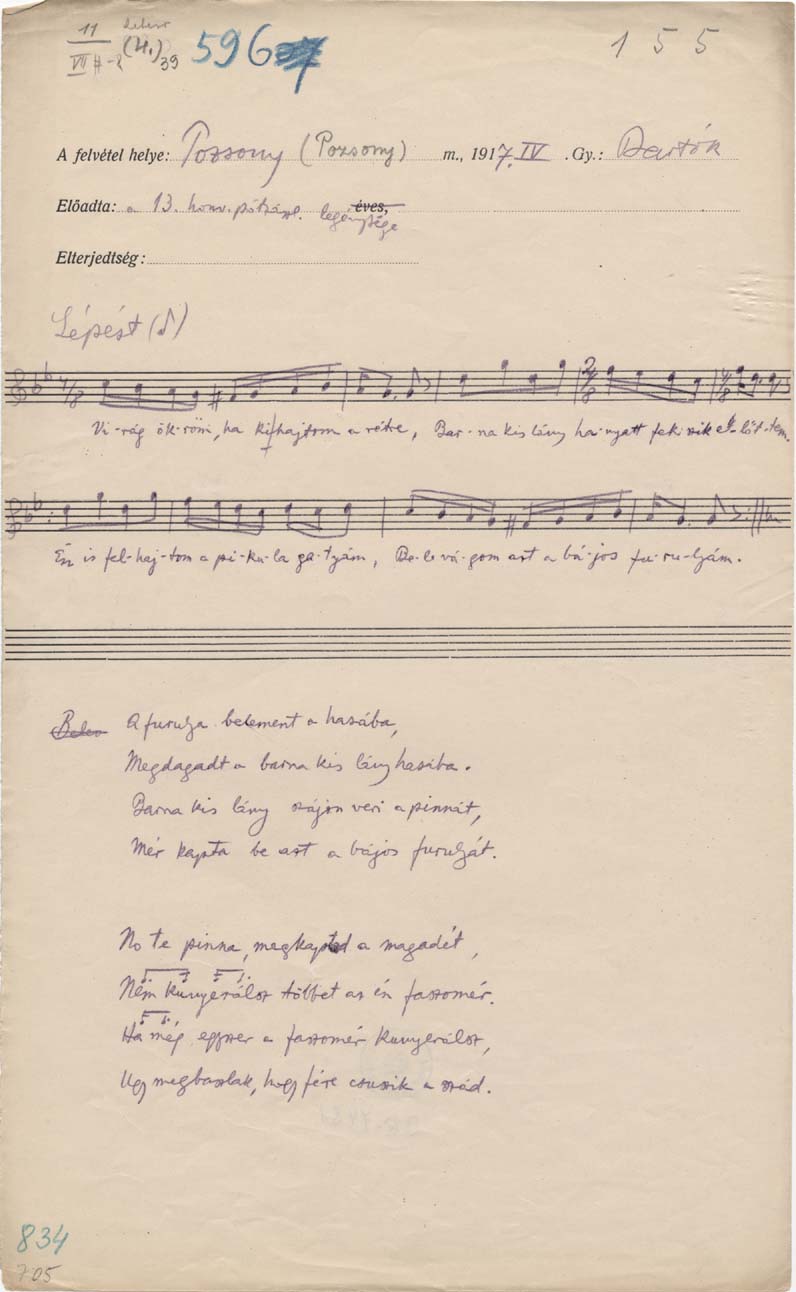 11 596
VII 39
1 5 5
A felvétel helye: Pozsony (Pozsony) m., 1917. IV .Gy.: Bartók
Előadta: a 13. honv. pótzászl. legénysége éves,
Elterjedtség:
Lépést (♪)
4/8 2/8 4/8
Vi-rág ök-röm, ha kihajtom a rétre, Bar-na kis lány ha-nyatt fek-szik e-lőt-tem.
Én is fel-haj-tom a pi-ku-la ga-tyám, Be-le vá-gom azt a bá-jos fu-ru-lyám.
Bele A furulya belement a hasába,
Megdagadt a barna kis lány hasába.
Barna kis lány szájon veri a pinnát,
Mér kapta be azt a bájos furulyát.
No te pinna, megkaptad a magadét,
Nem kunyerálsz többet az én faszomér.
Ha még egyszer a faszomér kunyerálsz,
Ugy megbaszlak, hogy fére csuszik a szád.
834
705